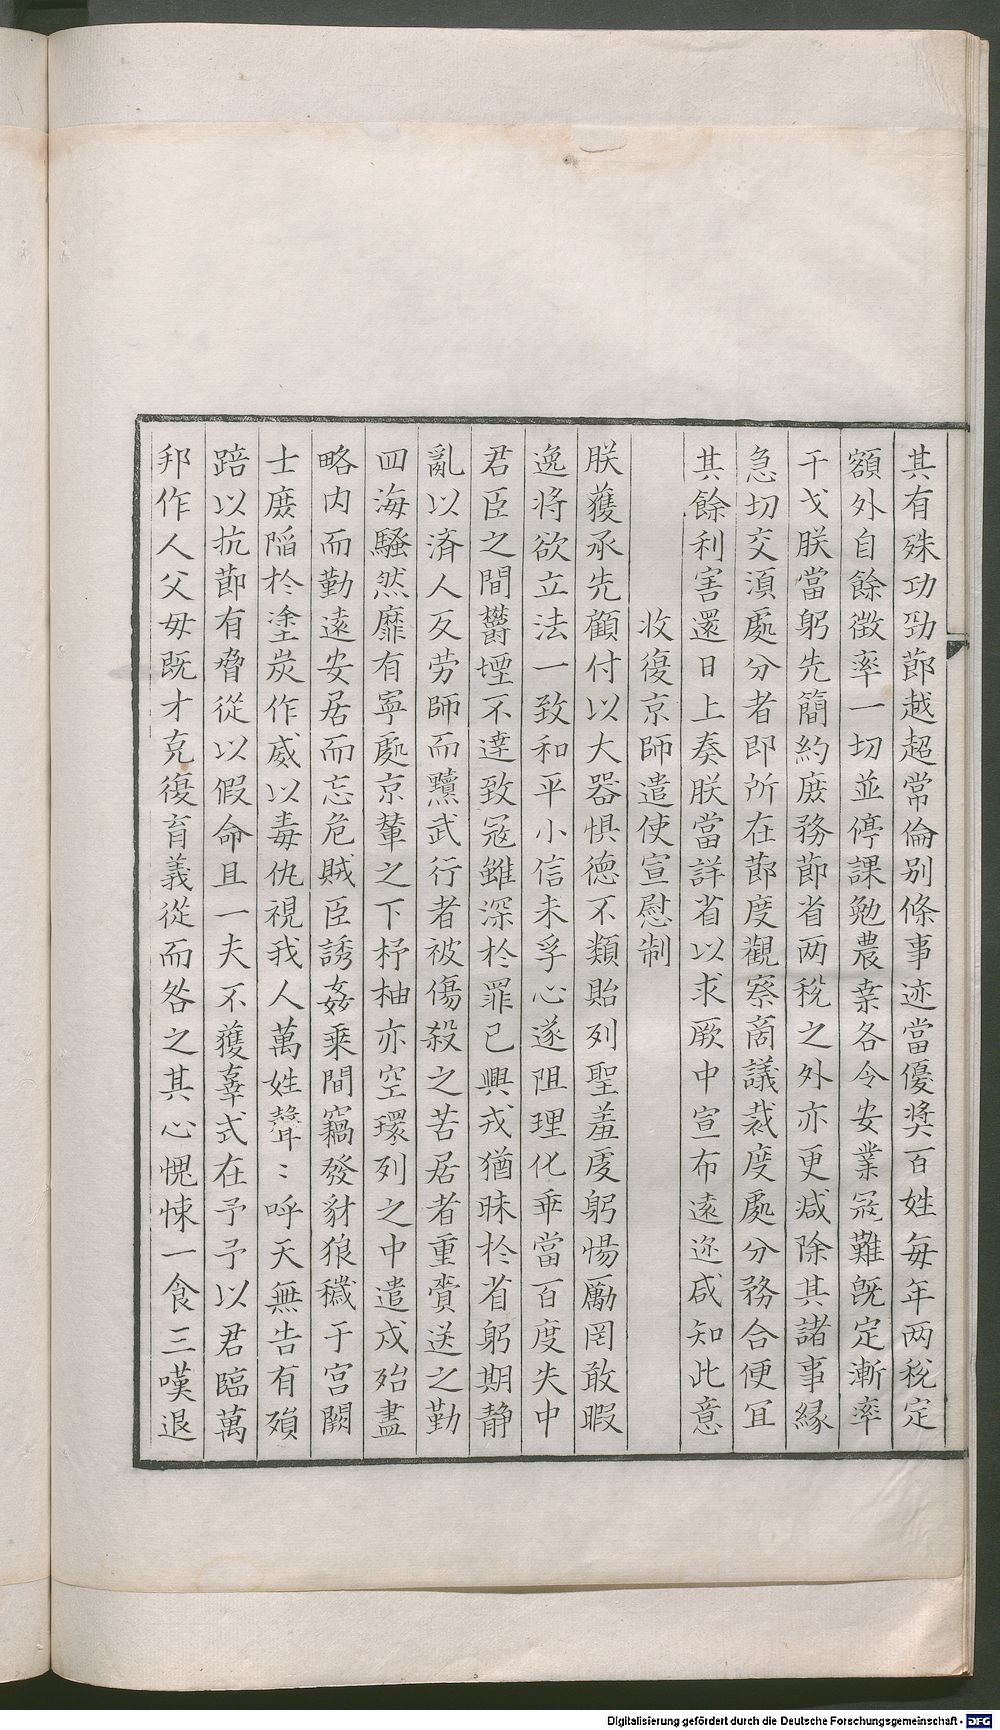 其有殊功勁節越超常倫别條事迹當優奬百姓每年两稅定
額外自餘徵率一切並停課勉農桒各令安業冦難旣定漸率
干戈朕當躬先簡約庶務節省两稅之外亦更减除其諸事緣
急切交湏處分者即所在節度觀察商議裁度處分務合便冝
其餘利害還日上奏朕當詳省以求厥中宣布遠迩咸知此意
收復京師遣使宣慰制
朕獲承先顧付以大器惧德不類貽列聖羞虔躬惕厲罔敢暇
逸将欲立法一致和平小信未孚心遂阻理化乖當百度失中
君臣之間欝堙不達致冦雖深於罪已興戎猶昧於省躬期静
亂以済人反劳師而黷武行者被傷殺之苦居者重賫送之勤
四海騷然靡有寧處京輦之下杼柚亦空環列之中遣戍殆盡
略内而勤遠安居而忘危賊臣誘姦乗間竊發豺狼穢于宫闕
士庻陷於塗炭作威以毒仇視我人萬姓聱〻呼天無告有殞
踣以抗節有脅從以假命且一夫不獲辜式在予予以君臨萬
邦作人父毋既才克復育義從而咎之其心愧悚一食三嘆退
Digitalisierung gefördert durch die Deutsche Forschungsgemeinschaft - DFG